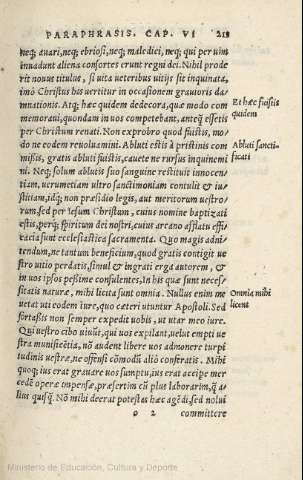 PARAPHRASIS. CAP. VI 219
neq; auari, neq; ebriosi, neq; maledici, neq; qui per uim
inuadunt aliena consortes erunt regni dei. Nihil prode
rit nouus titulus, si uita ueteribus uitijs sit inquinata,
imò Christus his uertitur in occasionem grauioris da=
mnationis. Atq; hæc quidem dedecora, quæ modo com
memoraui, quondam in uos competebant, antequã essetis
per Christum renati. Non exprobro quod fuistis, mo=
do ne eodem reuoluamini. Abluti estis à pristinis com
missis, gratis abluti fuistis, cauete ne rursus inquinemi
ni. Neq; solum abluit suo sanguine restituit innocen=
tiam, uerumetiam ultro sanctimoniam contulit & iu=
stitiam, idq; non præsidio legis, aut meritorum uestro=
rum, sed per Iesum Christum, cuius nomine baptizati
estis, perq; spiritum dei nostri, cuius arcano afflatu effi=
cacia sunt ecclesiastica sacramenta. Quo magis adni=
tendum, ne tantum beneficium, quod gratis contigit ue
stro uitio perdatis, simul & ingrati erga autorem, & in
in uos ipsos pessime consulentes, in his quæ sunt neces=
sitatis naturæ, mihi licita sunt omnia. Nullus enim me
uetat uti eodem iure, quo cæteri utuntur Apostoli. Sed
fortassis non semper expedit uobis, ut utar meo iure.
Qui uestro cibo uiuũt, qui uos expilant, uelut empti ue
stra munificẽtia, nõ audent libere uos admonere turpi
tudinis uestræ, ne offensi cõmodũ alió conferatis. Mihi
quoq; ius erat grauare uos sumptu, ius erat accipe mer
cedẽ operæ impensæ, præsertim cũ plus laborarim, q̃ a=
lius quisq̃. Nõ mihi deerat potestas hæc agẽdi, sed nolui
o 2 committere
Et hæc fuistis
quidem
Abluti sancti=
ficati
Omnia mihi
licent
Ministerio de Educación, Cultura y Deporte